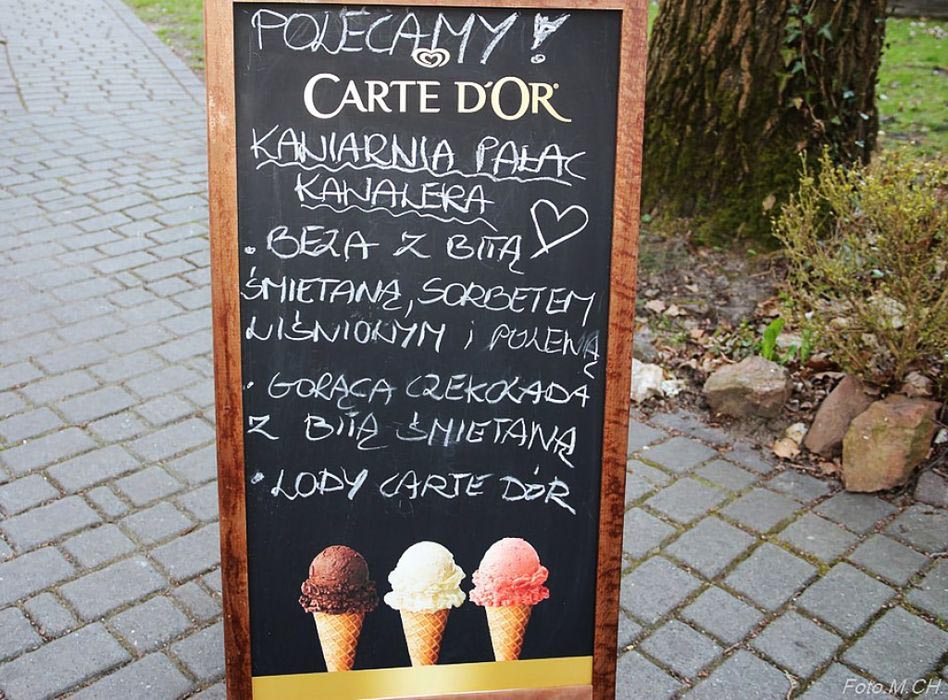 POLECAMY!
CARTE D'OR
KAWIARNIA PAŁAC
KAWALERA
• BEZA Z BITĄ
ŚMIETANĄ, SORBETEM
WIŚNIOWYM i POLEWĄ
• GORĄCA CZEKOLADA
Z BITĄ ŚMIETANĄ
• LODY CARTE D'OR
Foto.M.CH.